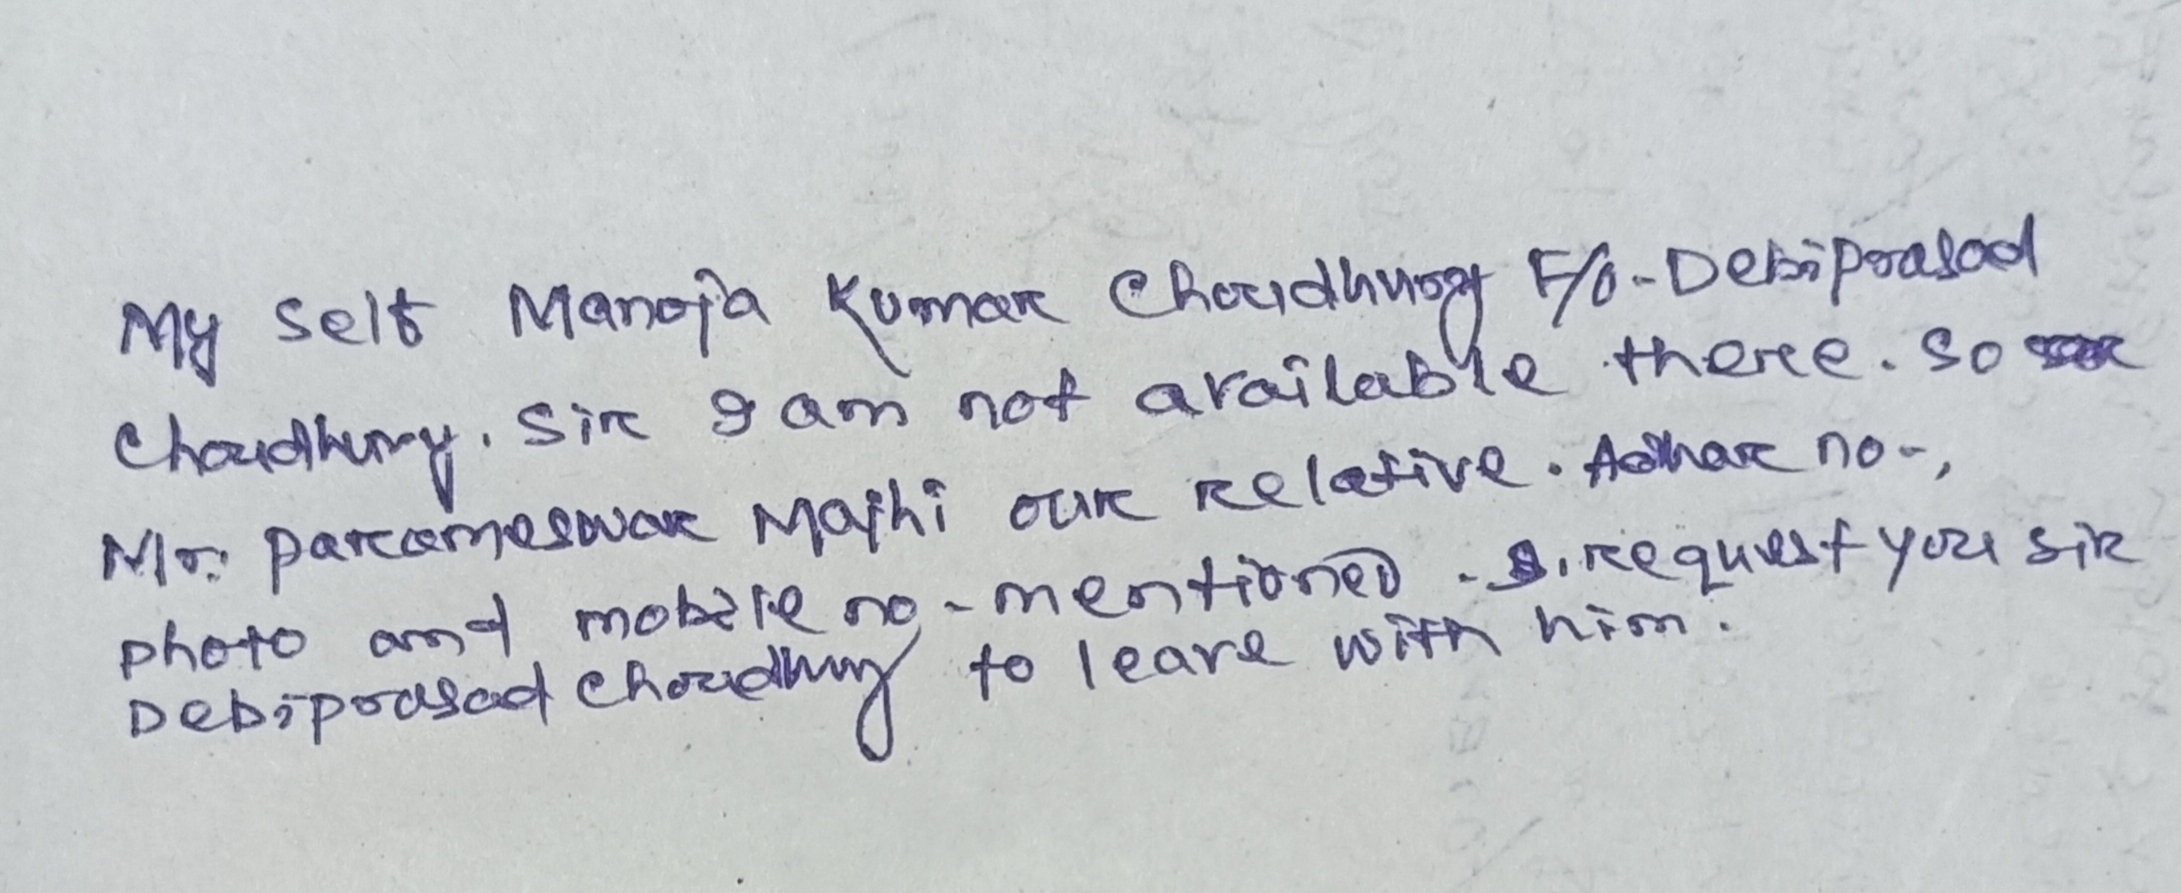 My self Manoja Kumar Choudhury F/O-Debiprasad
Choudhury. Sir I am not available there. So
Mr. Parameswar Majhi our relative. Adhar no-,
photo and mobile no-mentioned. I request you sir
Debiprasad Choudhury to leave with him.